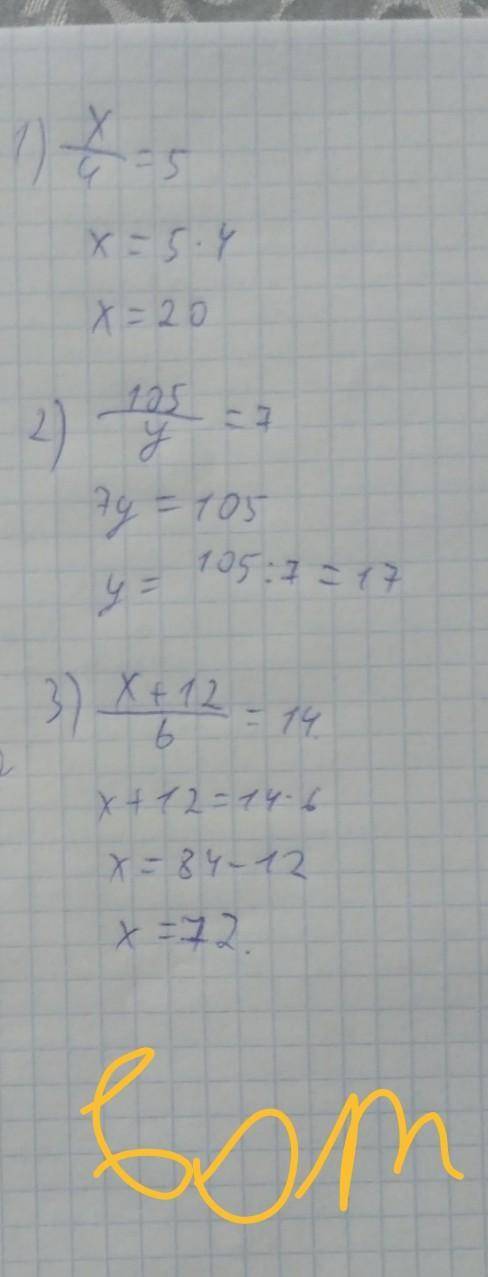 1) x/4 = 5
x = 5 · 4
x = 20
2) 105/y = 7
7y = 105
y = 105 : 7 = 17
3) x + 12/6 = 14
x + 12 = 14 · 6
x = 84 - 12
x = 72.
вот